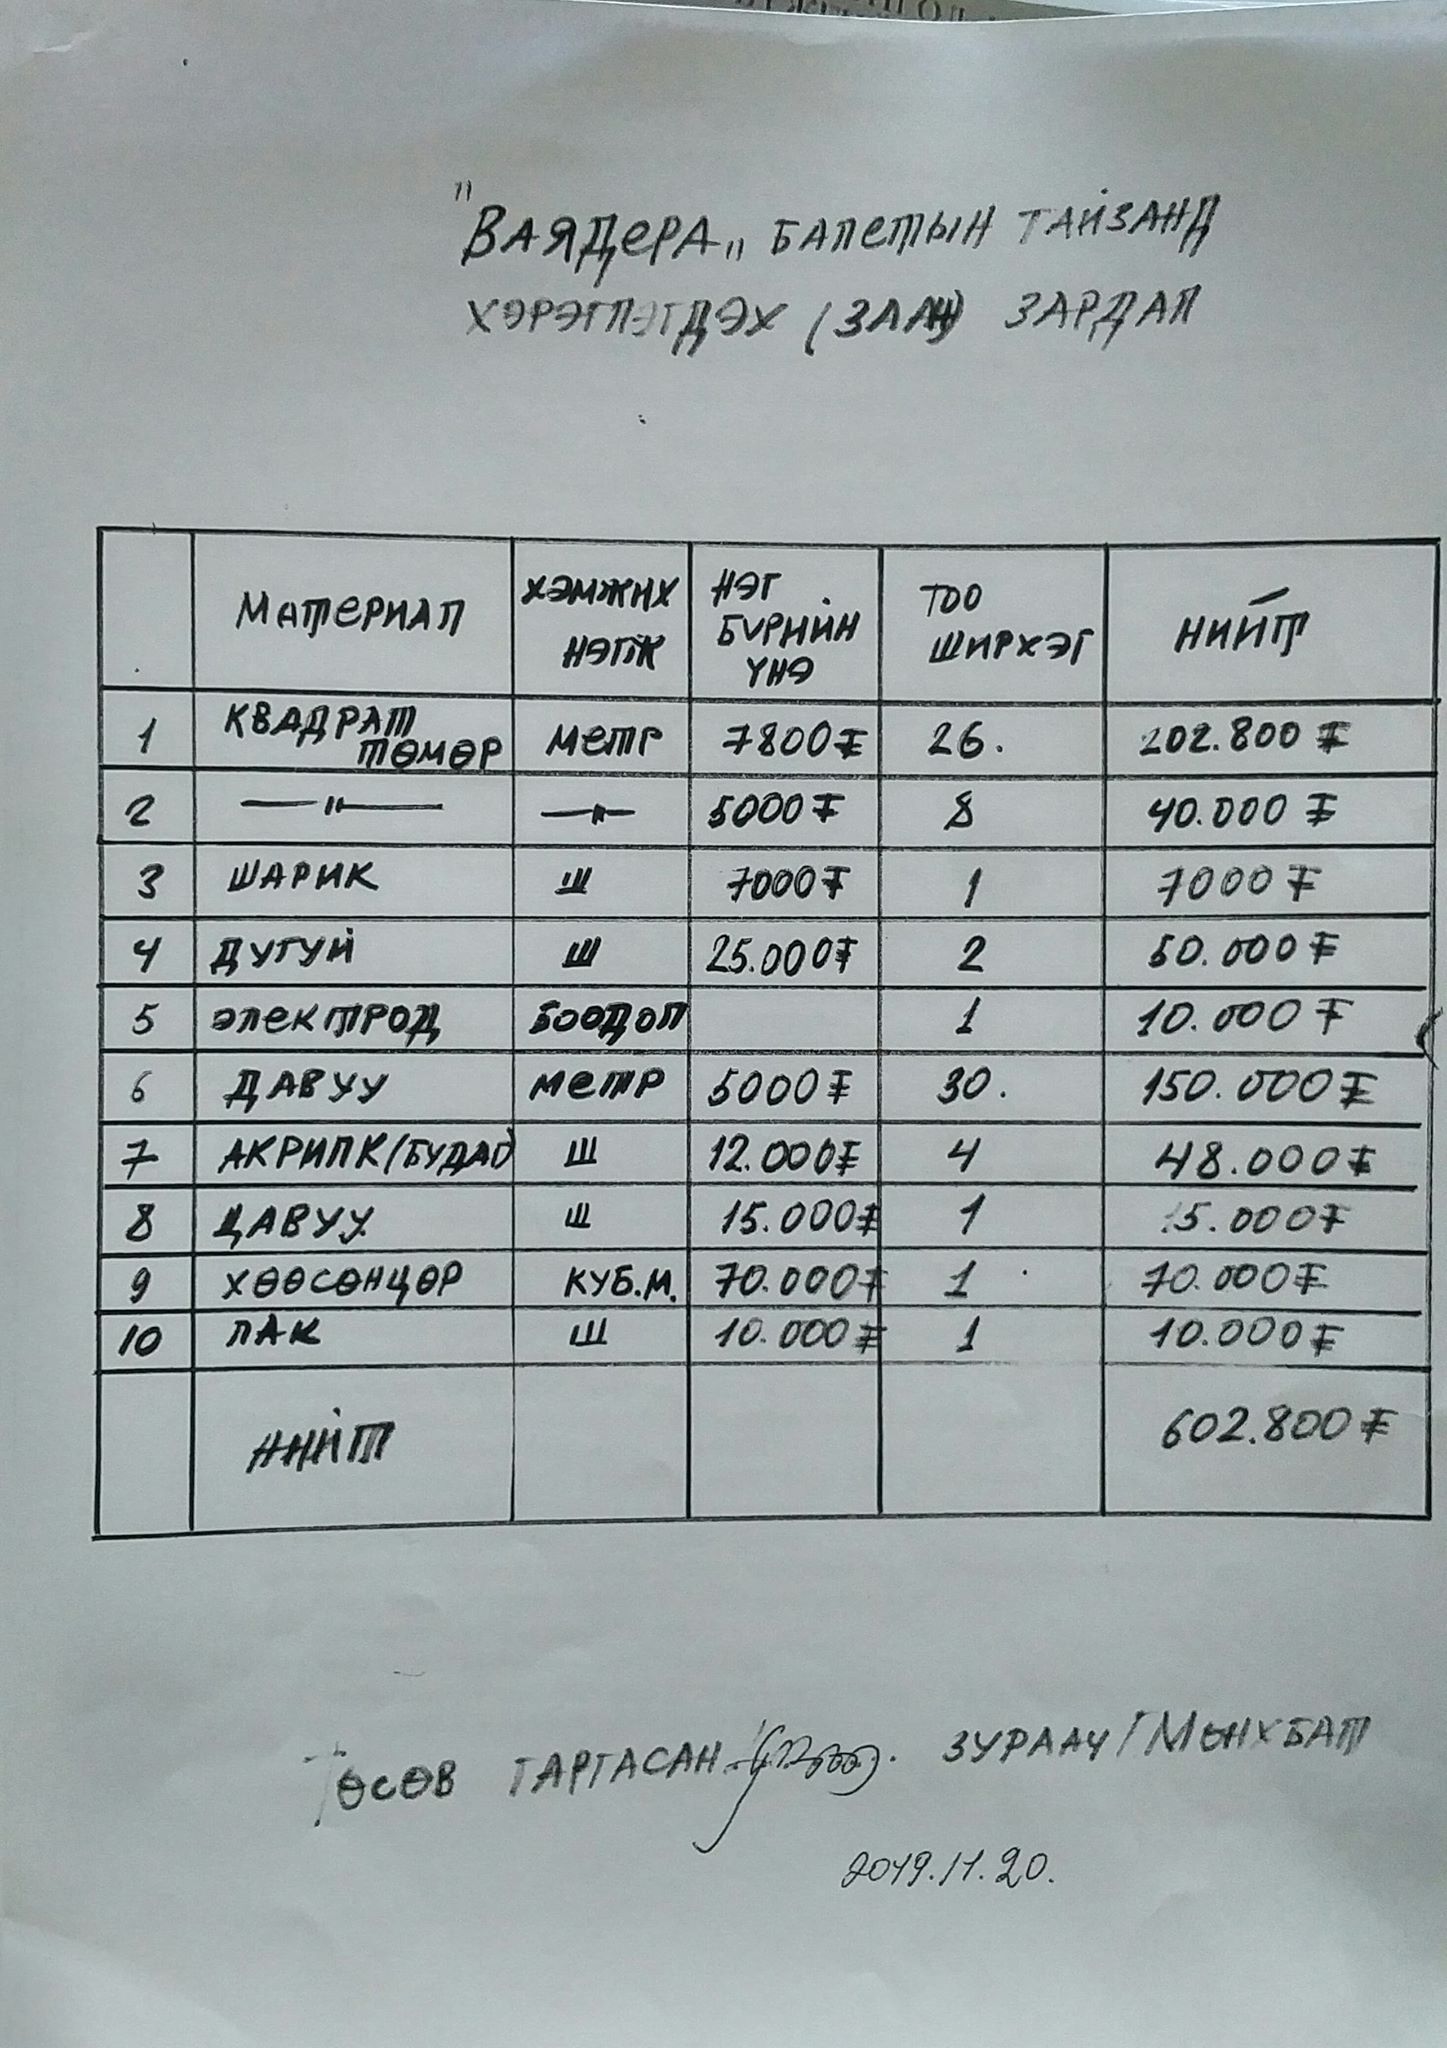 "ВАЯДЕРА„ БАЛЕТЫН ТАЙЗАНД
ХЭРЭГЛЭГДЭХ (ЗААН) ЗАРДАЛ
МАТЕРИАЛ ХЭМЖИХ НЭГЖ НЭГ БҮРИЙН ҮНЭ ТОО ШИРХЭГ НИЙТ
1 КВАДРАТ ТӨМӨР МЕТР 7800₮ 26. 202.800₮
2 —〃— —〃— 5000₮ 8 40.000₮
3 ШАРИК Ш 7000₮ 1 7000₮
4 ДУГУЙ Ш 25.000₮ 2 50.000₮
5 ЭЛЕКТРОД БООДОЛ 1 10.000₮
6 ДАВУУ МЕТР 5000₮ 30. 150.000₮
7 АКРИЛК (БУДАГ) Ш 12.000₮ 4 48.000₮
8 ЦАВУУ Ш 15.000₮ 1 15.000₮
9 ХӨӨСӨНЦӨР КУБ.М. 70.000₮ 1 70.000₮
10 ЛАК Ш 10.000₮ 1 10.000₮
НИЙТ 602.800₮
ТӨСӨВ ГАРГАСАН ЗУРААЧ / МӨНХБАТ
2019.11.20.